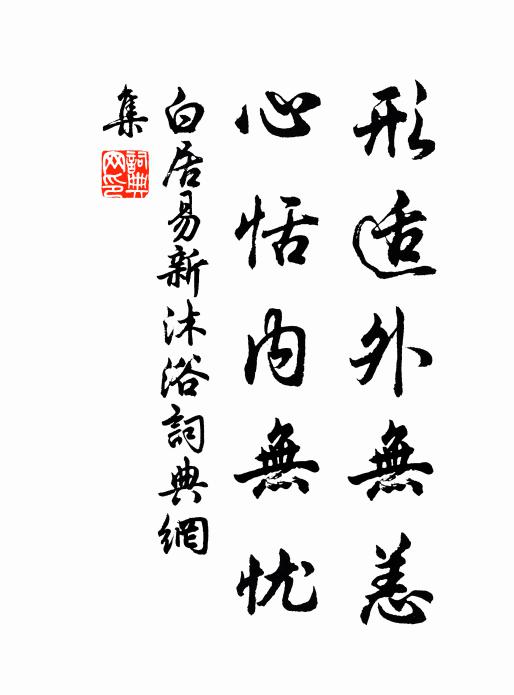 形适外無恙
心恬内無忧
白居易新沐浴詞典網
集
詞典网印